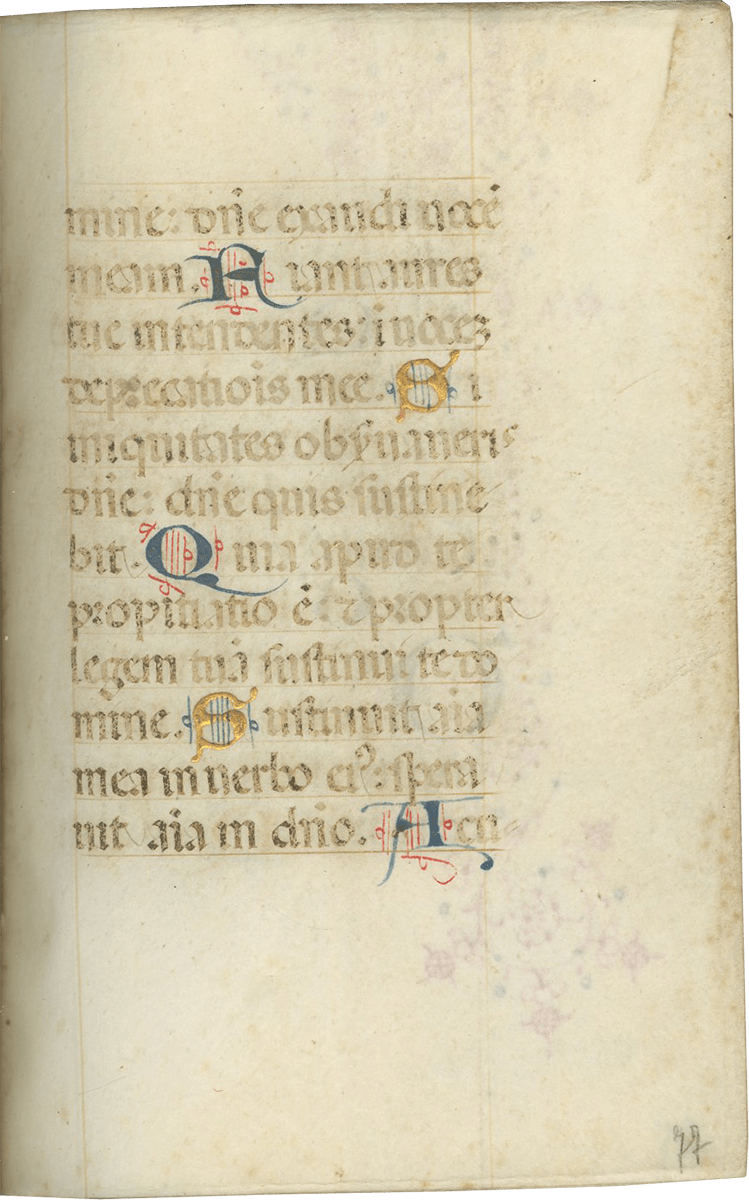 mine: dñe exaudi uocē
meam. Fiant aures
tue intendentes: i uocez
deprecatiois mee. Si
iniquitates obs̃uaueris
dñe: dñe quis sustine
bit. Quia apud te
propitiatio ē: ⁊ propter
legem tuā sustinui te do
mine. Sustinuit aīa
mea in uerbo eiꝰ: spera
uit aīa in dño. A cu
77